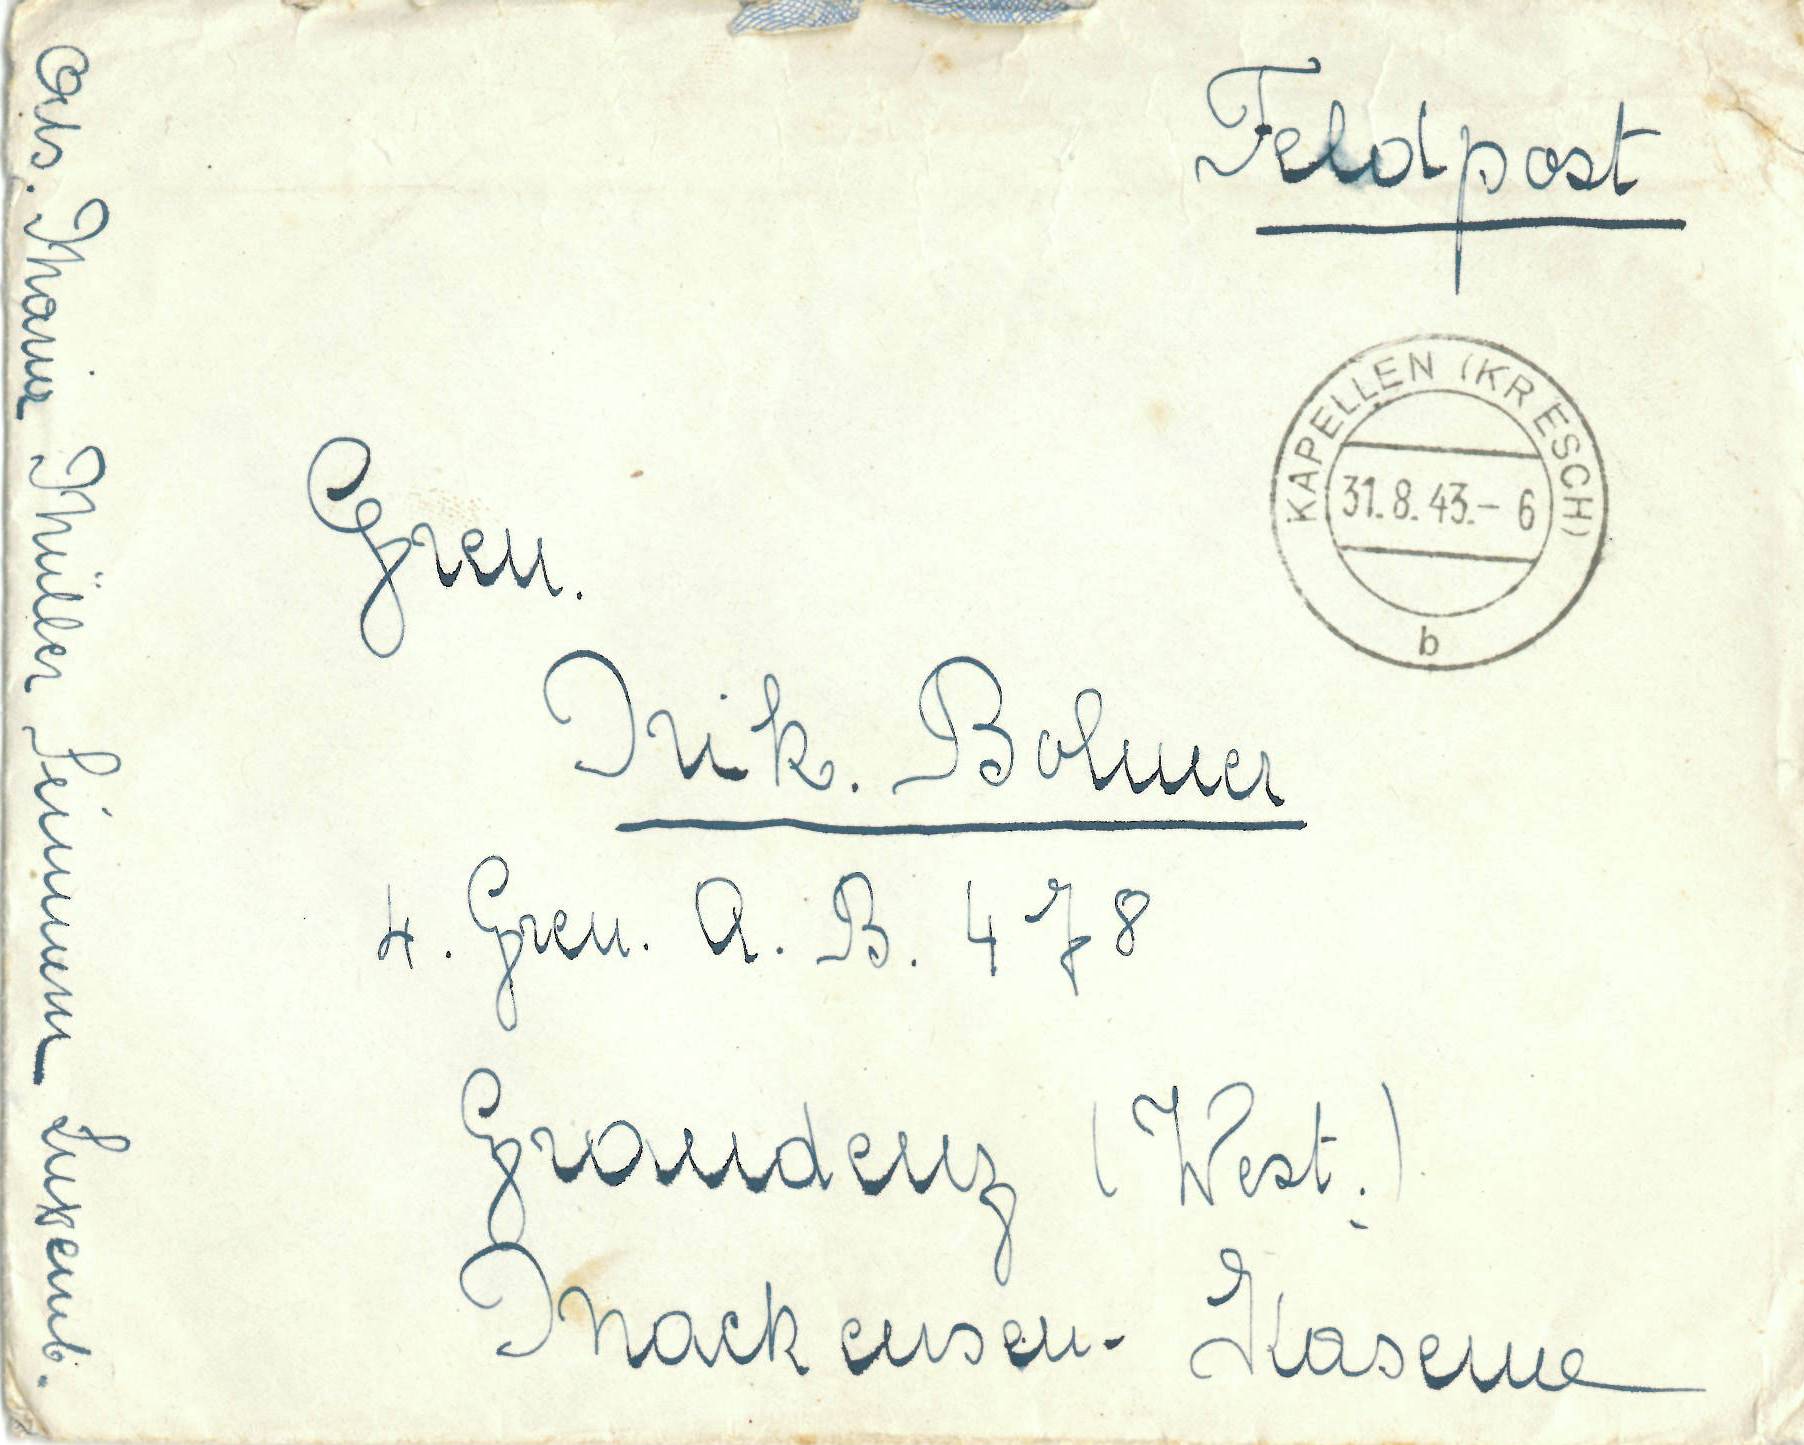 Feldpost
KAPELLEN (KR ESCH)
31.8.43.- 6
b
Gren.
Nik. Bohmer
4. Gren. A. B. 478
Graudenz (West.)
Mackensen-Kaserne
Abs. Maria Müller Luxemb.